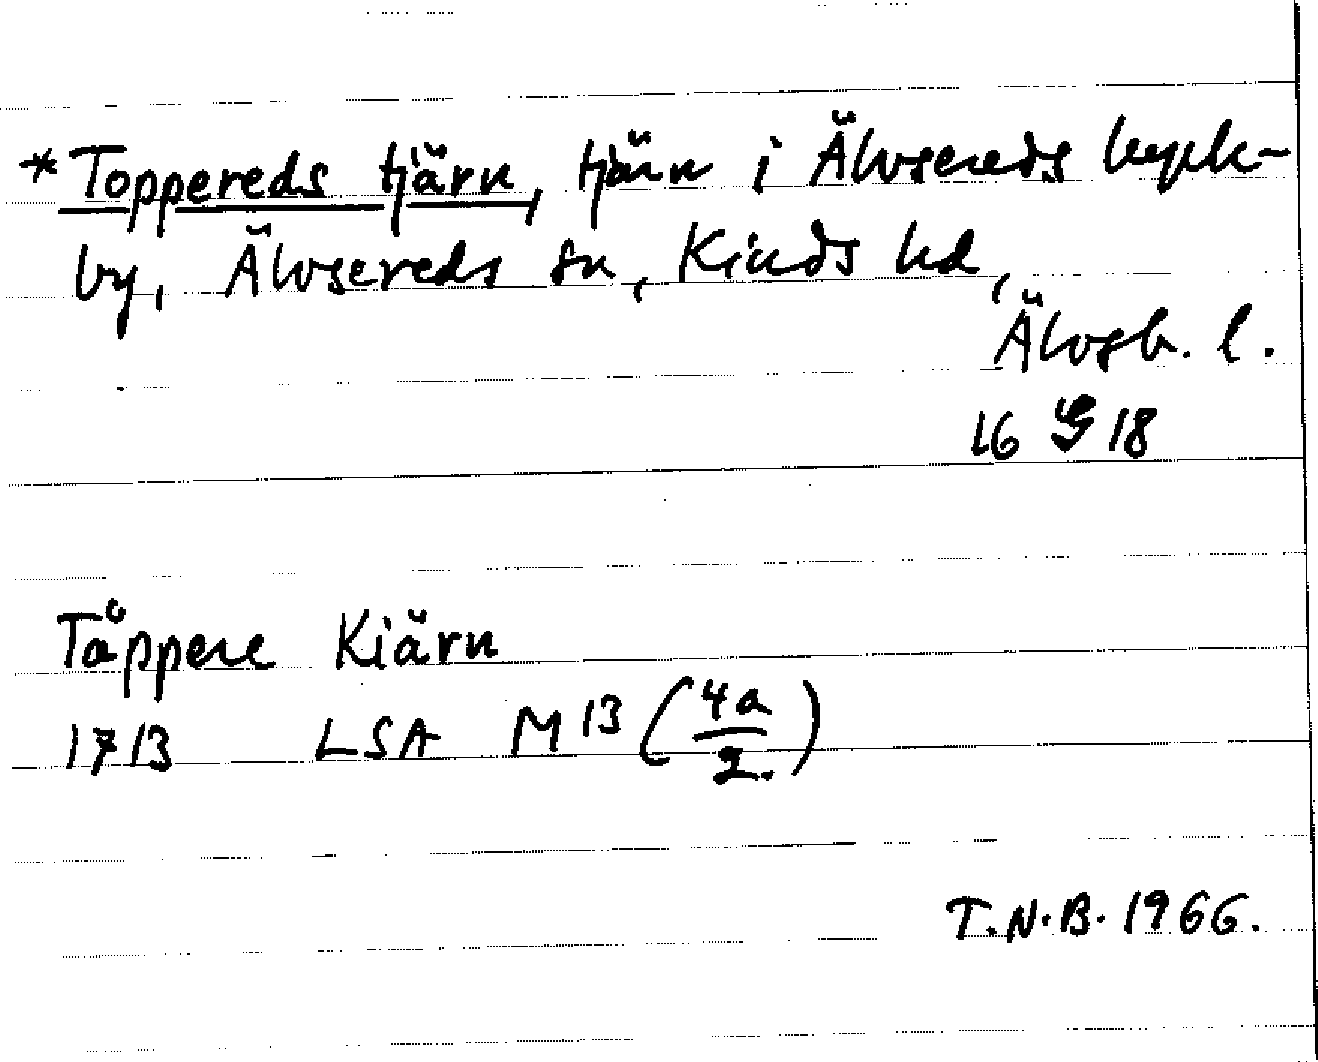 *Toppereds tjärn, tjärn i Älvsereds kyrk-
by, Älvsereds sn, Kinds hd,
Älvsb. l.
16 G 18
Tåppere Kiärn
1713 LSA M 13 (4a/2.)
T.N.B. 1966.